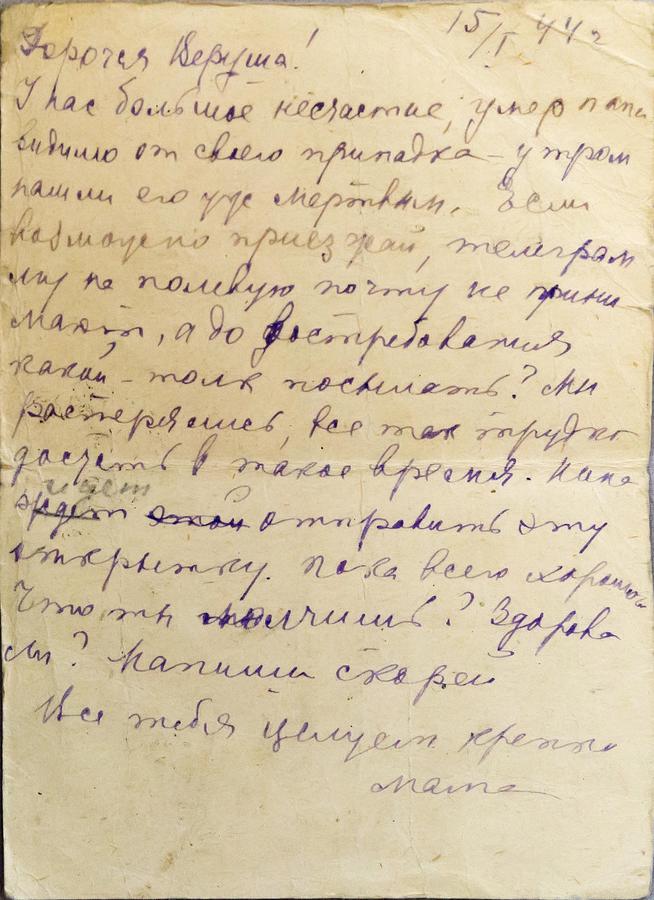 15/I 44 г
Дорогая Веруша!
У нас большое несчастие, умер папа
видимо от своего припадка – утром
нашли его уже мертвым. Если
возможно приезжай, телеграм
му на полевую почту не прини
мают, а до востребования
какой – толк посылать? Мы
растерялись, все так трудно
достать в такое время.
идет
ждет этой отправить эту
открытку. Пока всего хорошего
Что ты молчишь? Здорова
ли? Напиши скорей
Все тебя целуем крепко
мама